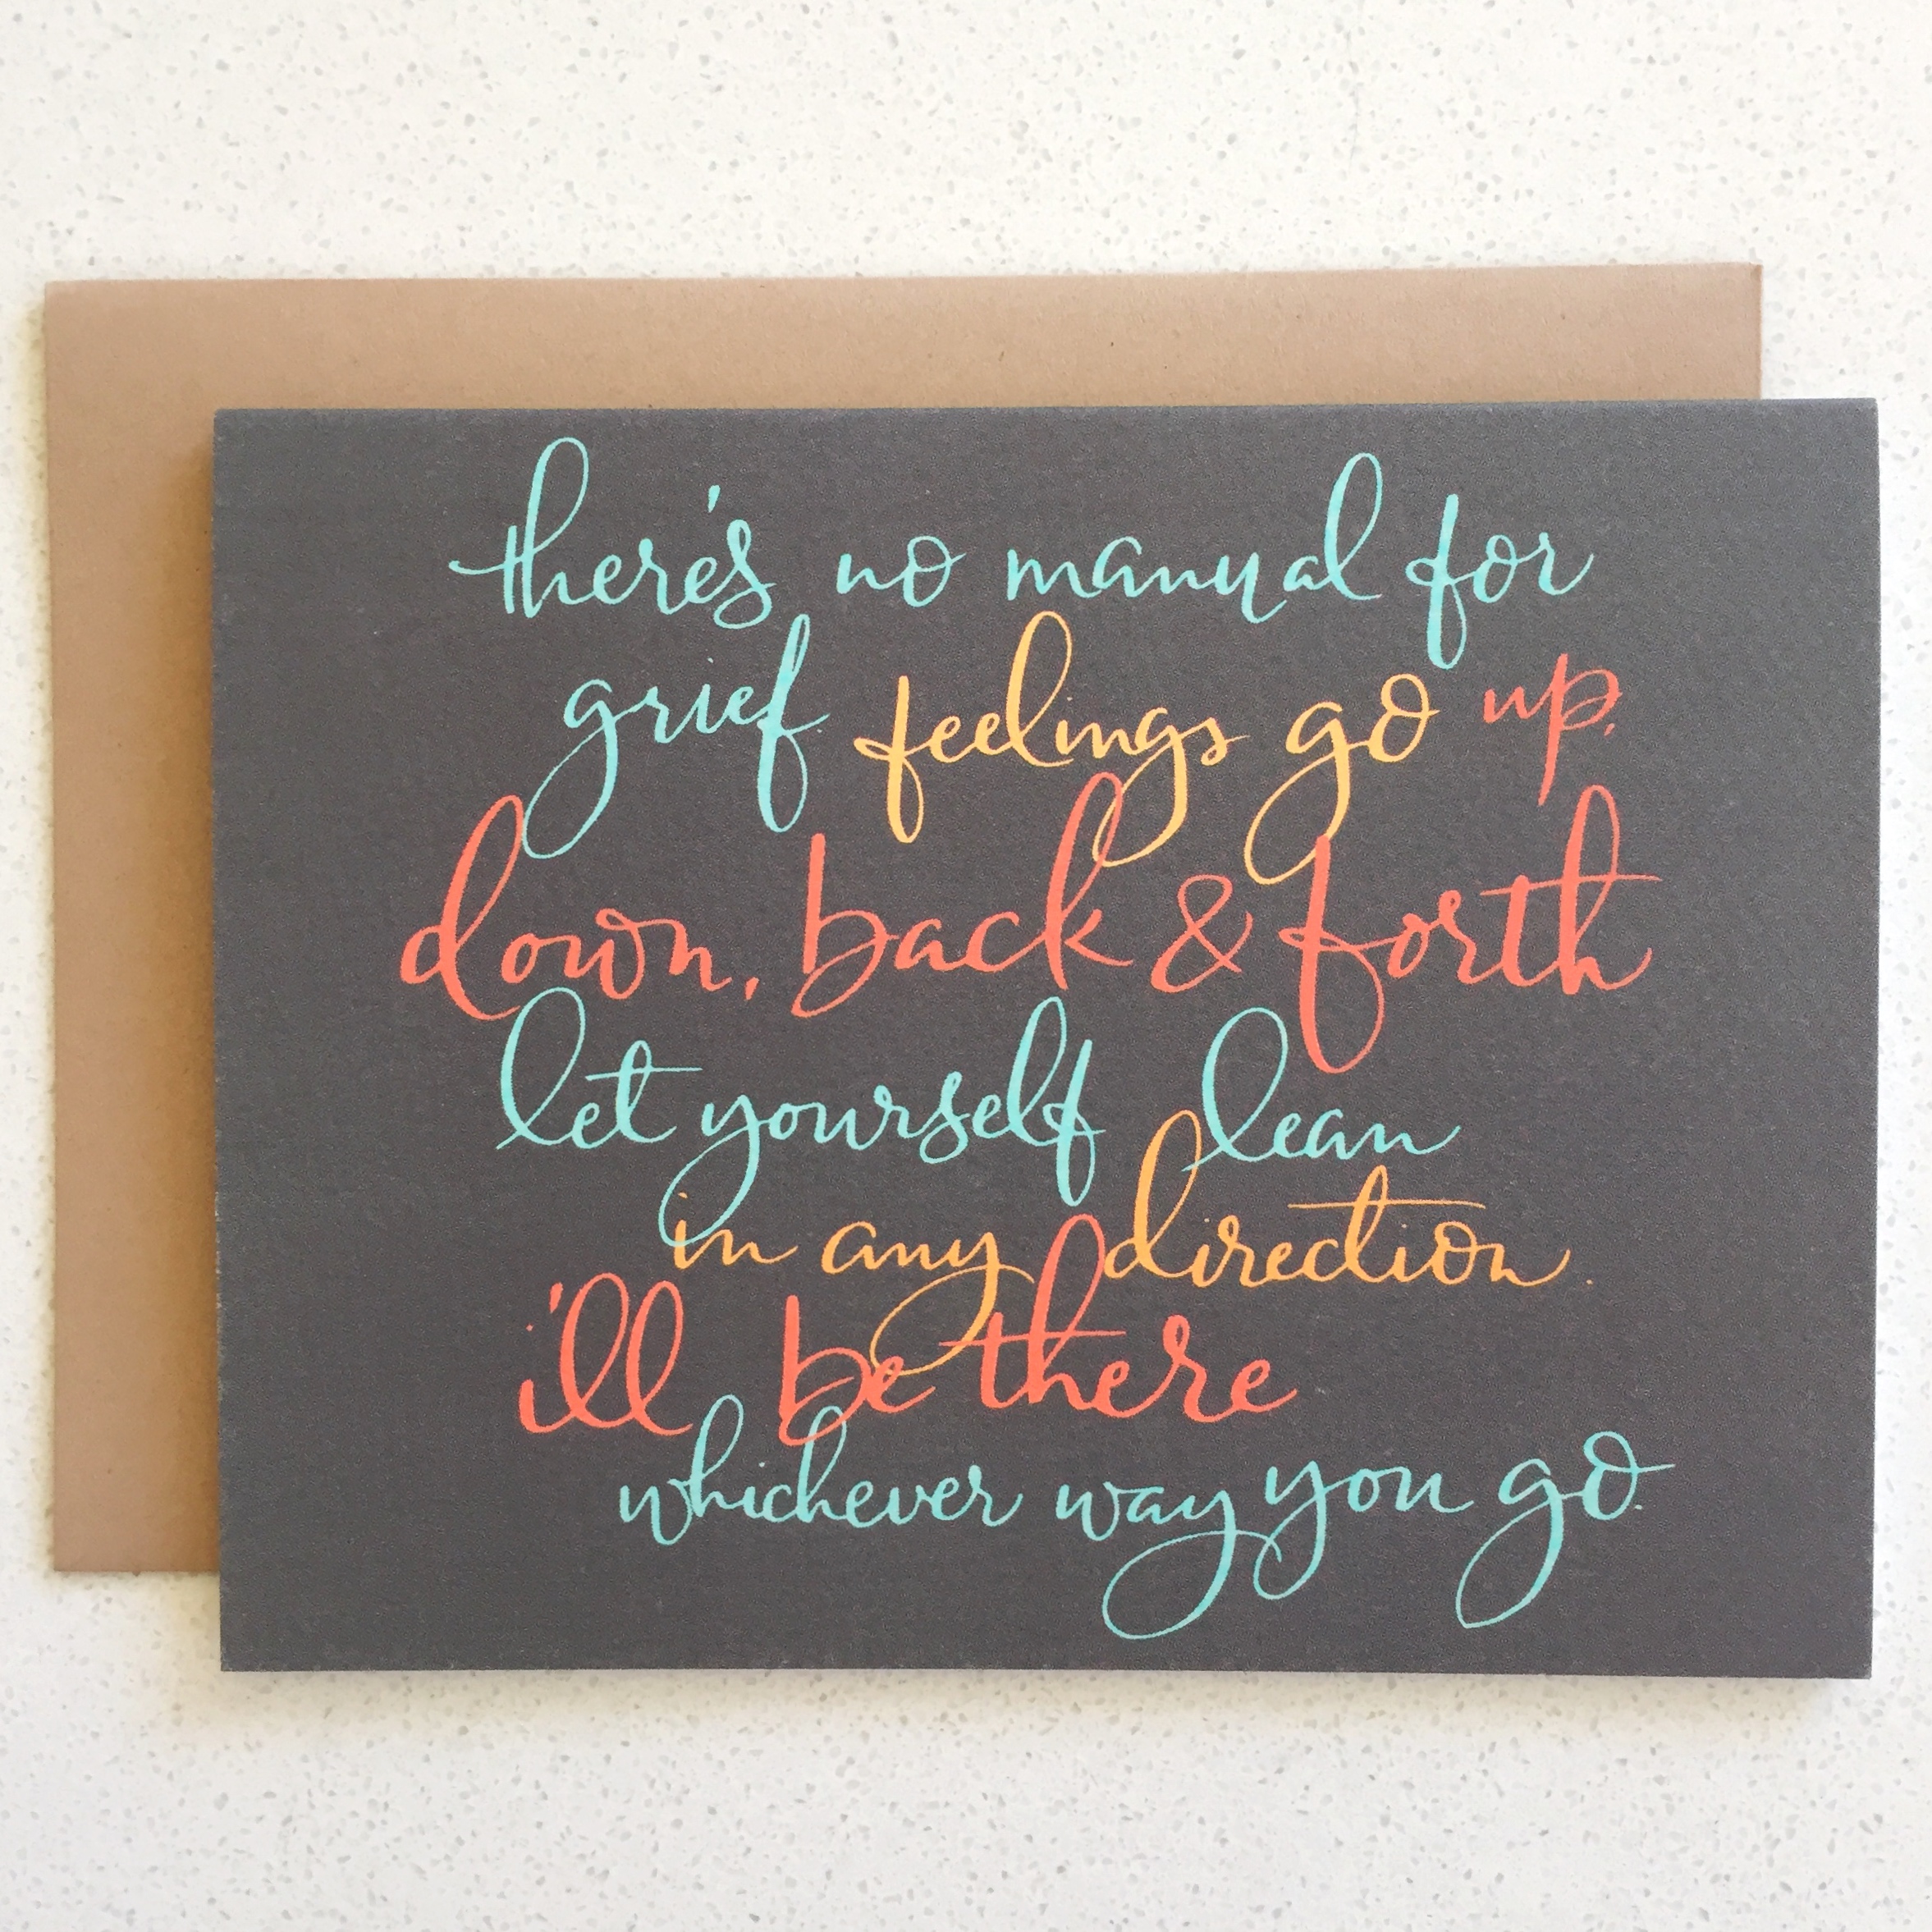 there's no manual for
grief. feelings go up,
down, back & forth
let yourself lean
in any direction.
i'll be there
whichever way you go.